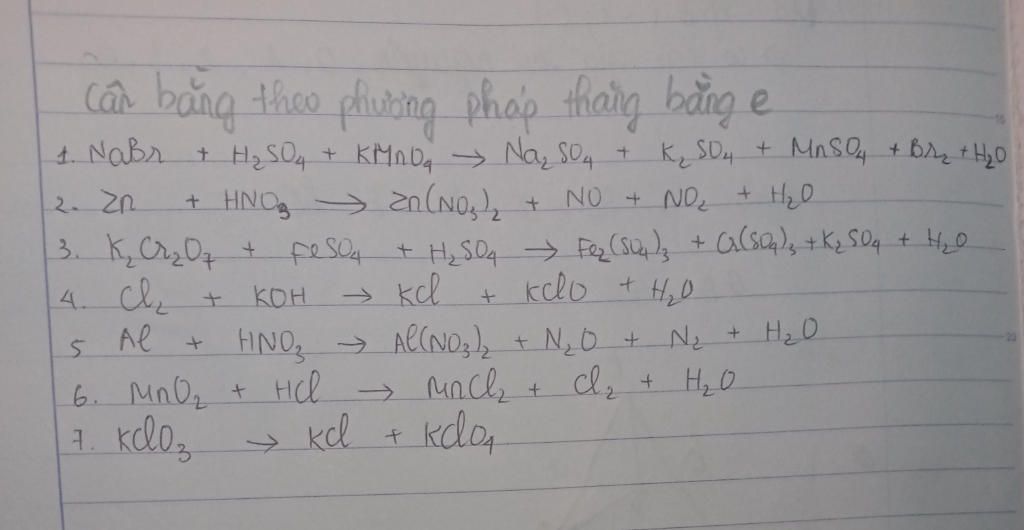 Cân bằng theo phương pháp thăng bằng e
1. NaBr + H₂SO₄ + KMnO₄ → Na₂SO₄ + K₂SO₄ + MnSO₄ + Br₂ + H₂O
2. Zn + HNO₃ → Zn(NO₃)₂ + NO + NO₂ + H₂O
3. K₂Cr₂O₇ + FeSO₄ + H₂SO₄ → Fe₂(SO₄)₃ + Cr(SO₄)₃ + K₂SO₄ + H₂O
4. Cl₂ + KOH → KCl + KClO + H₂O
5 Al + HNO₃ → Al(NO₃)₂ + N₂O + N₂ + H₂O
6. MnO₂ + HCl → MnCl₂ + Cl₂ + H₂O
7. KClO₃ → KCl + KClO₄